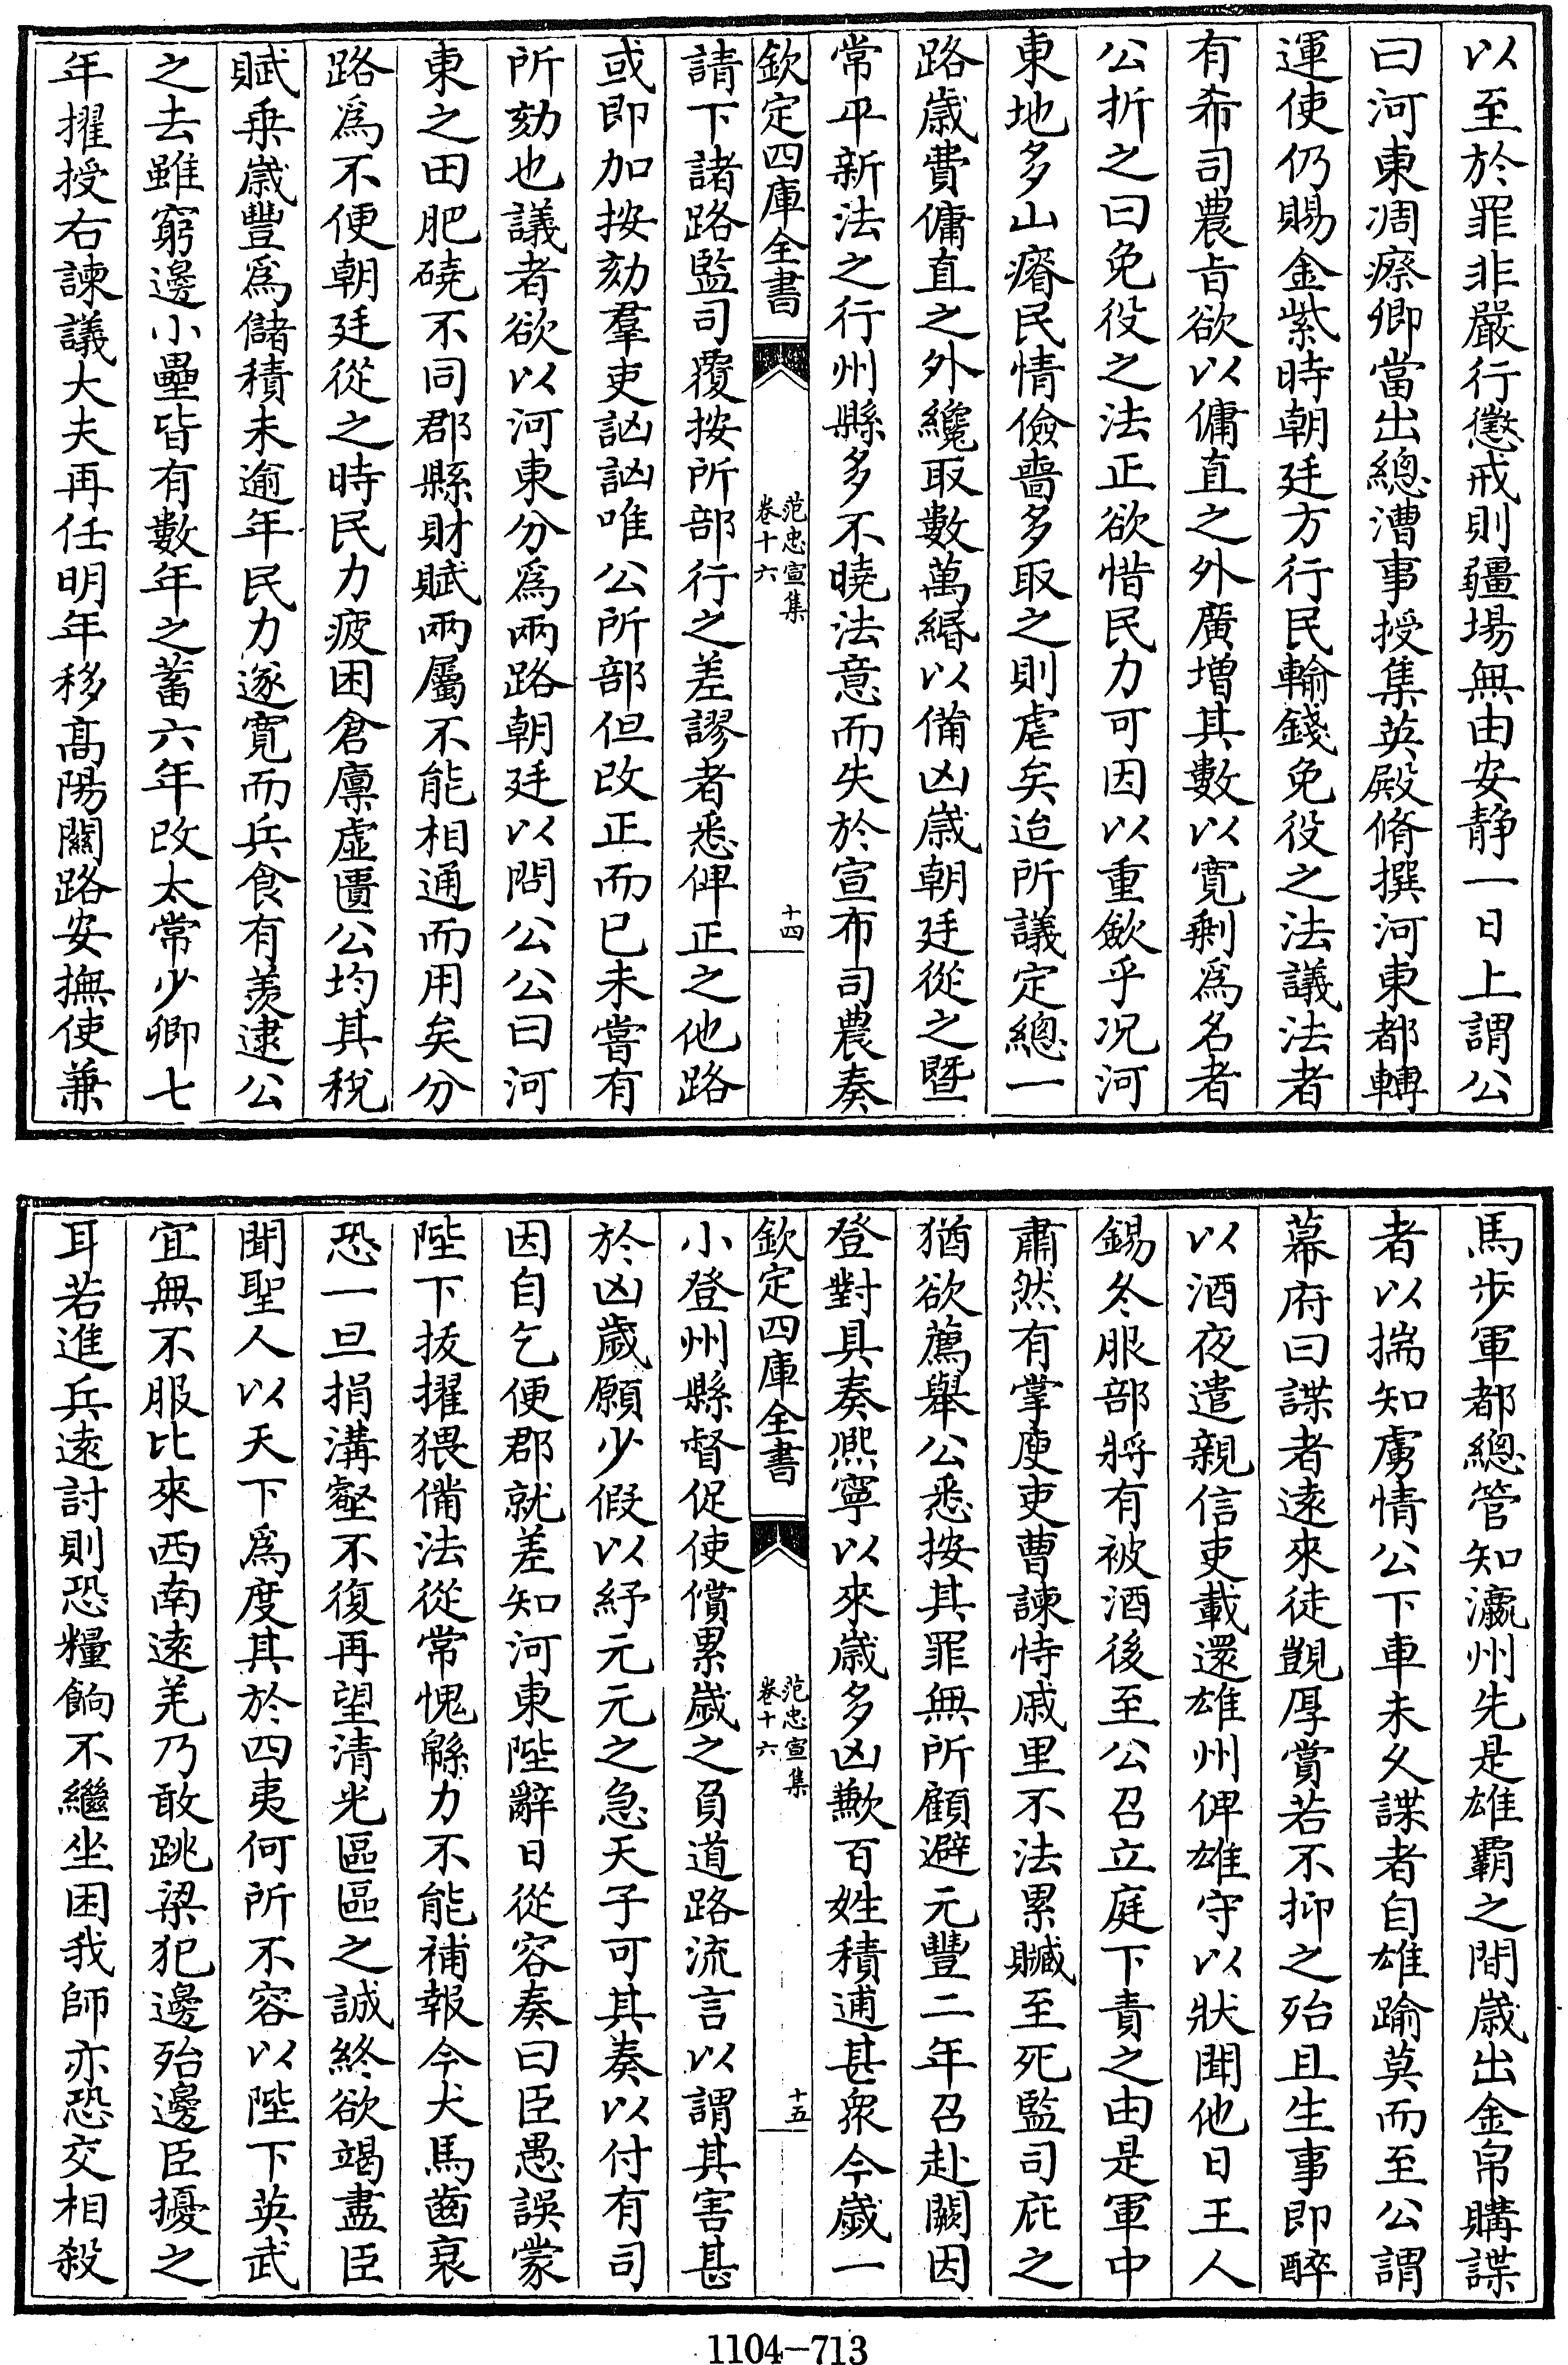 以至於罪非嚴行懲戒則疆場無由安静一日上謂公
曰河東凋瘵卿當出總漕事授集英殿脩撰河東都轉
運使仍賜金紫時朝廷方行民輸錢免役之法議法者
有希司農㫖欲以傭直之外廣增其數以寛剰爲名者
公折之曰免役之法正欲惜民力可因以重歛乎况河
東地多山瘠民情儉嗇多取之則虐矣迨所議定總一
路歳費傭直之外纔取數萬緡以備凶歳朝廷從之曁
常平新法之行州縣多不曉法意而失於宣布司農奏
欽定四庫全書
范忠宣集
卷十六
十四
請下諸路監司覆按所部行之差謬者悉俾正之他路
或即加按劾羣吏訩訩唯公所部但改正而已未嘗有
所劾也議者欲以河東分爲兩路朝廷以問公公曰河
東之田肥磽不同郡縣財賦兩屬不能相通而用矣分
路爲不便朝廷從之時民力疲困倉廪虚匱公均其稅
賦乗歳豐爲儲積未逾年民力遂寛而兵食有羡逮公
之去雖窮邊小壘皆有數年之蓄六年改太常少卿七
年擢授右諫議大夫再任明年移髙陽關路安撫使兼
馬步軍都總管知瀛州先是雄覇之間歳出金帛購諜
者以揣知虜情公下車未久諜者自雄踰莫而至公謂
幕府曰諜者逺來徒覬厚賞若不抑之殆且生事即醉
以酒夜遣親信吏載還雄州俾雄守以狀聞他日王人
錫冬服部將有被酒後至公召立庭下責之由是軍中
肅然有掌庾吏曹諫恃戚里不法累贓至死監司庇之
猶欲薦舉公悉按其罪無所顧避元豐二年召赴闕因
登對具奏熈寧以來歳多凶歉百姓積逋甚衆今歳一
欽定四庫全書
范忠宣集
卷十六
十五
小登州縣督促使償累歳之負道路流言以謂其害甚
於凶歲願少假以紓元元之急天子可其奏以付有司
因自乞便郡就差知河東陛辭日從容奏曰臣愚誤蒙
陛下拔擢猥備法從常愧緜力不能補報今犬馬齒衰
恐一旦捐溝壑不復再望清光區區之誠終欲竭盡臣
聞聖人以天下爲度其於四夷何所不容以陛下英武
宜無不服比來西南逺羌乃敢跳梁犯邊殆邊臣擾之
耳若進兵逺討則恐糧餉不繼坐困我師亦恐交相殺
1104-713